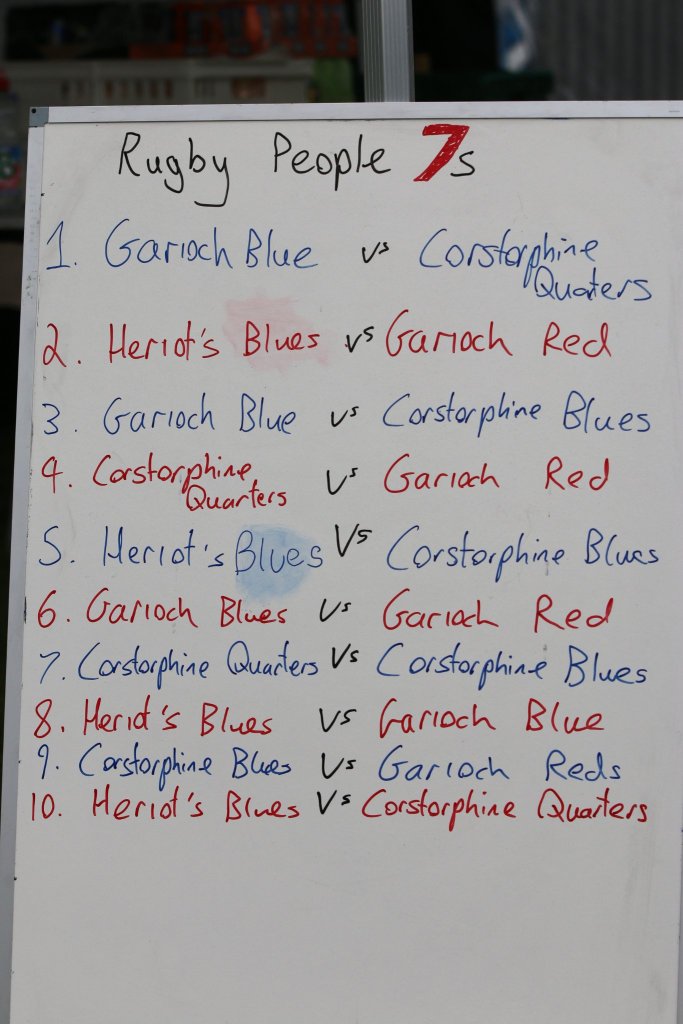 Rugby People 7s
1. Garioch Blue vs Corstorphine
Quaters
2. Heriot's Blues vs Garioch Red
3. Garioch Blue vs Corstorphine Blues
4. Corstorphine
Quarters vs Garioch Red
5. Heriot's Blues Vs Corstorphine Blues
6. Garioch Blues Vs Garioch Red
7. Corstorphine Quarters Vs Corstorphine Blues
8. Heriot's Blues Vs Garioch Blue
9. Corstorphine Blues Vs Garioch Reds
10. Heriot's Blues Vs Corstorphine Quarters